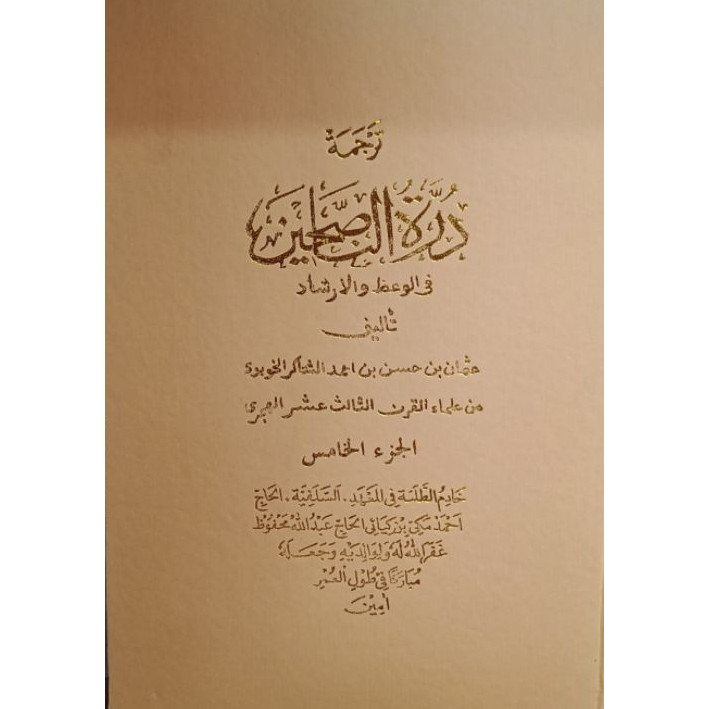 تَرْجَمَة
دُرَّةُ النَّاصِحِيْن
فى الوعظ والارشاد
تأليف
عثمان بن حسن بن احمد الشاكر الخوبوى
من علماء القرن الثالث عشر الهجرى
الجزء الخامس
خَادِمُ الطَّلَبَة فِى المَعْهَدِ. السَّلَفِيَّة. الحَاجّ
اَحْمَدْ مَكِّى بِنْ الحَاجّ عَبْدُ اللّٰه مَحْفُوْظ
غَفَرَ اللّٰهُ لَهُ وَلِوَالِدَيْهِ وَجَعَلَهُ
مُبَارَكًا فِى طُوْلِ الْعُمُرِ
اٰمِيْنَ